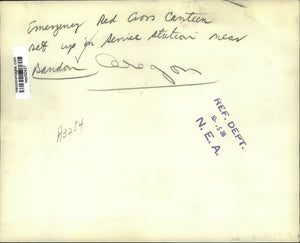 Emergency Red Cross Canteen
set up in service station near
Bandon Oregon
A3254
REF. DEPT.
N.E.A.